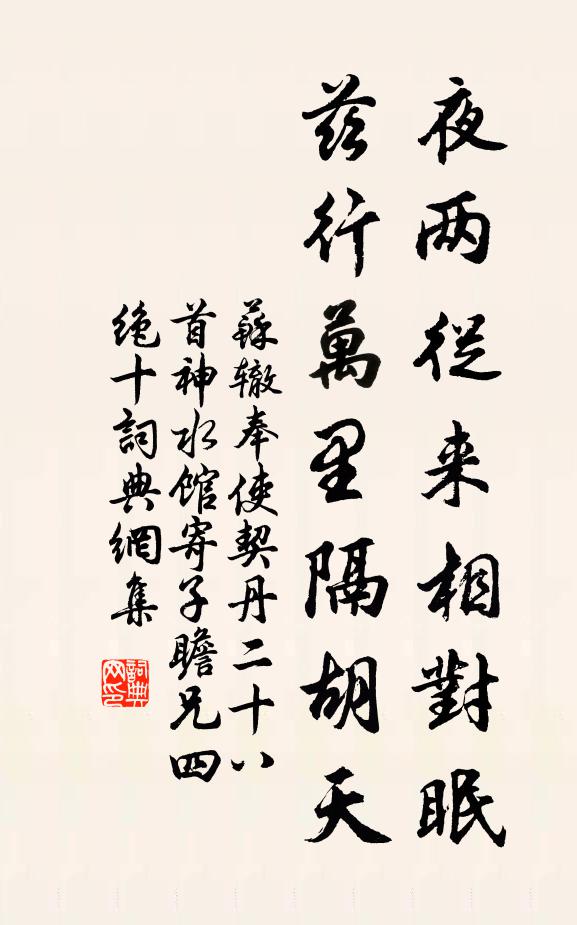 夜两從来相對眠
茲行萬里隔胡天
蘇辙奉使契丹二十八
首神水馆寄子瞻兄四
绝十詞典網集
詞典网印